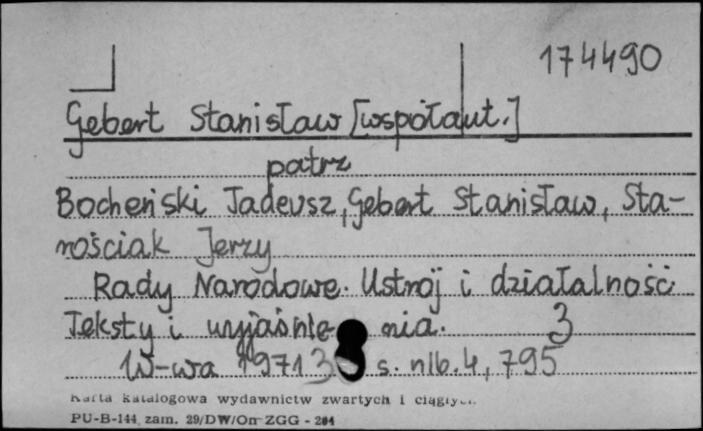 174490
Gebert Stanisław [współaut.]
patrz
Bocheński Tadeusz, Gebert Stanisław, Sta-
rościak Jerzy
Rady Narodowe. Ustrój i działalność
Teksty i wyjaśnie nia. 3
W-wa 1971 s. nlb. 4, 795
Karta katalogowa wydawnictw zwartych i ciągłyc..
PU-B-144 zam. 29/DW/On ZGG - 204